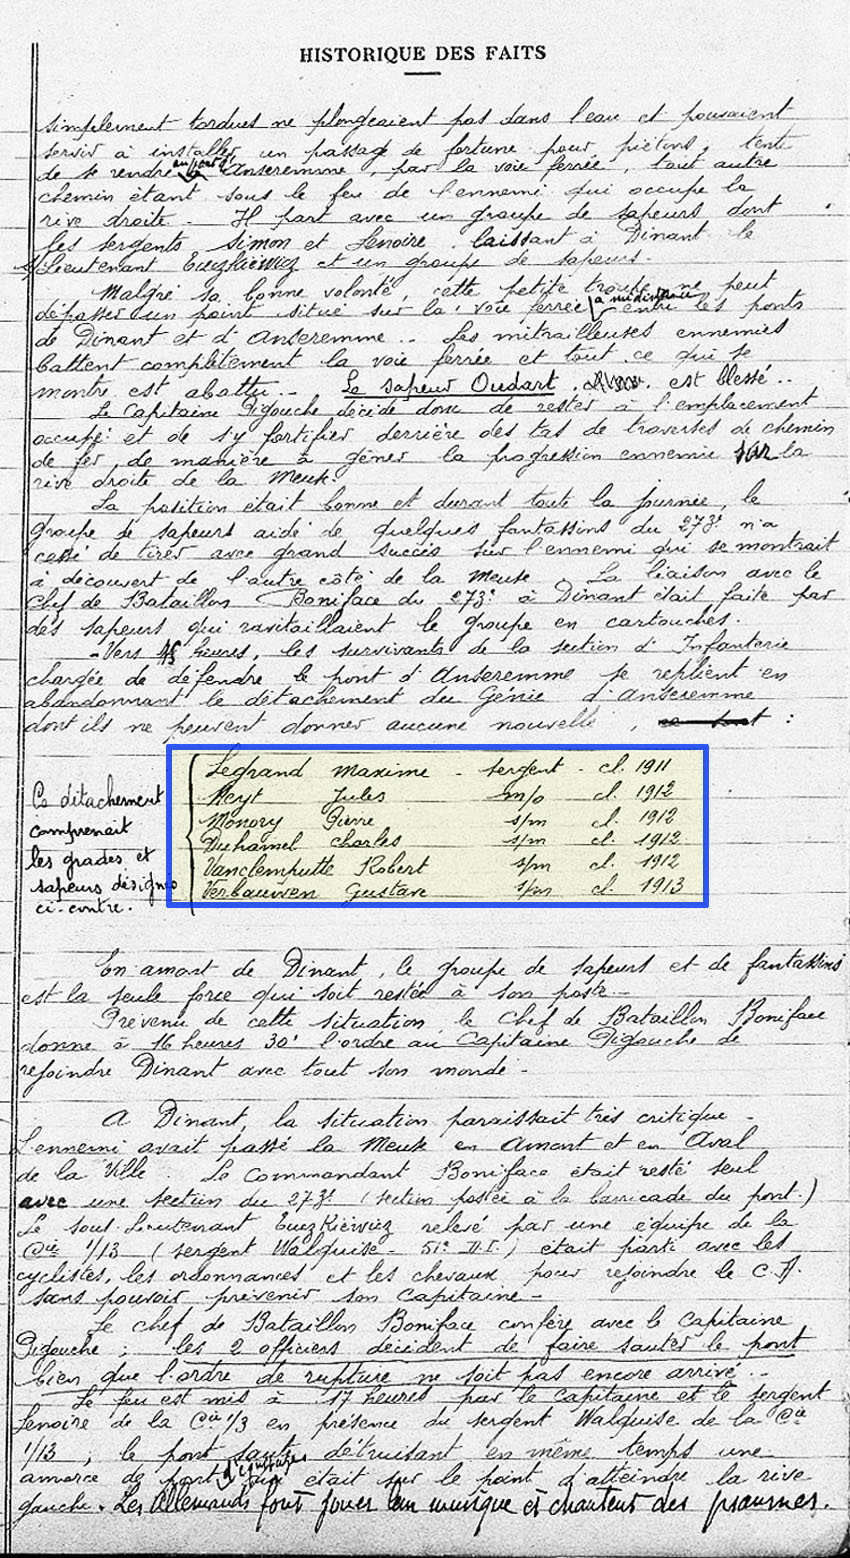 HISTORIQUE DES FAITS
simplement tordues ne plongeaient pas dans l'eau et pouvaient
servir à installer un passage de fortune pour piétons, tente
de se rendre au pont d'Anseremme, par la voie ferrée, tout autre
chemin étant sous le feu de l'ennemi qui occupe la
rive droite - Il part avec un groupe de sapeurs dont
les sergents Simon et Lenoire, laissant à Dinant le
s/Lieutenant Euzkiewicz et un groupe de sapeurs -
Malgré sa bonne volonté, cette petite troupe ne peut
dépasser un point situé sur la voie ferrée à mi distance entre les ponts
de Dinant et d'Anseremme .. Les mitrailleuses ennemies
battent complètement la voie ferrée et tout ce qui se
montre est abattu .. Le sapeur Oudart est blessé ..
Le Capitaine Pigouche décide donc de rester à l'emplacement
occupé et de s'y fortifier derrière des tas de traverses de chemin
de fer, de manière à gêner la progression ennemie sur la
rive droite de la Meuse.
La position était bonne et durant toute la journée, le
groupe de sapeurs aidé de quelques fantassins du 273e n'a
cessé de tirer avec grand succès sur l'ennemi qui se montrait
à découvert de l'autre côté de la Meuse La liaison avec le
Chef de Bataillon Boniface du 273e à Dinant était faite par
des sapeurs qui ravitaillaient le groupe en cartouches.
- Vers heures, les survivants de la section d'Infanterie
chargée de défendre le pont d'Anseremme se replient en
abandonnant le détachement du Génie d'Anseremme
dont ils ne peuvent donner aucune nouvelle, :
Ce détachement
comprenait
les gradés et
sapeurs désignés
ci-contre.
Legrand Maxime - sergent - cl. 1911
Meyt Jules m/o cl. 1912
Monory Pierre s/m cl. 1912
Duhamel Charles s/m cl. 1912
Vanclemputte Robert s/m cl. 1912
Verbauwen Gustave s/m cl. 1913
En amont de Dinant, le groupe de sapeurs et de fantassins
est la seule force qui soit restée à son poste -
Prévenu de cette situation le Chef de Bataillon Boniface
donne à 16 heures 30' l'ordre au Capitaine Pigouche de
rejoindre Dinant avec tout son monde -
A Dinant, la situation paraissait très critique -
L'ennemi avait passé la Meuse en Amont et en Aval
de la Ville. Le Commandant Boniface était resté seul
avec une section du 273e (section postée à la barricade du pont.)
Le sous-Lieutenant Euzkiewicz relevé par une équipe de la
Cie 1/13 (sergent Walquise - 51e D.I.) était parti avec les
cyclistes, les ordonnances et les chevaux pour rejoindre le C.A.
sans pouvoir prévenir son Capitaine -
Le chef de Bataillon Boniface confère avec le Capitaine
Pigouche ; les 2 officiers décident de faire sauter le pont
bien que l'ordre de rupture ne soit pas encore arrivé ..
Le feu est mis à 17 heures par le Capitaine et le sergent
Lenoire de la Cie 1/3 en présence du sergent Walquise de la Cie
1/13 ; le pont saute détruisant en même temps une
amorce de pont d'équipages qui était sur le point d'atteindre la rive
gauche. Les Allemands font jouer leur musique et chantent des psaumes.